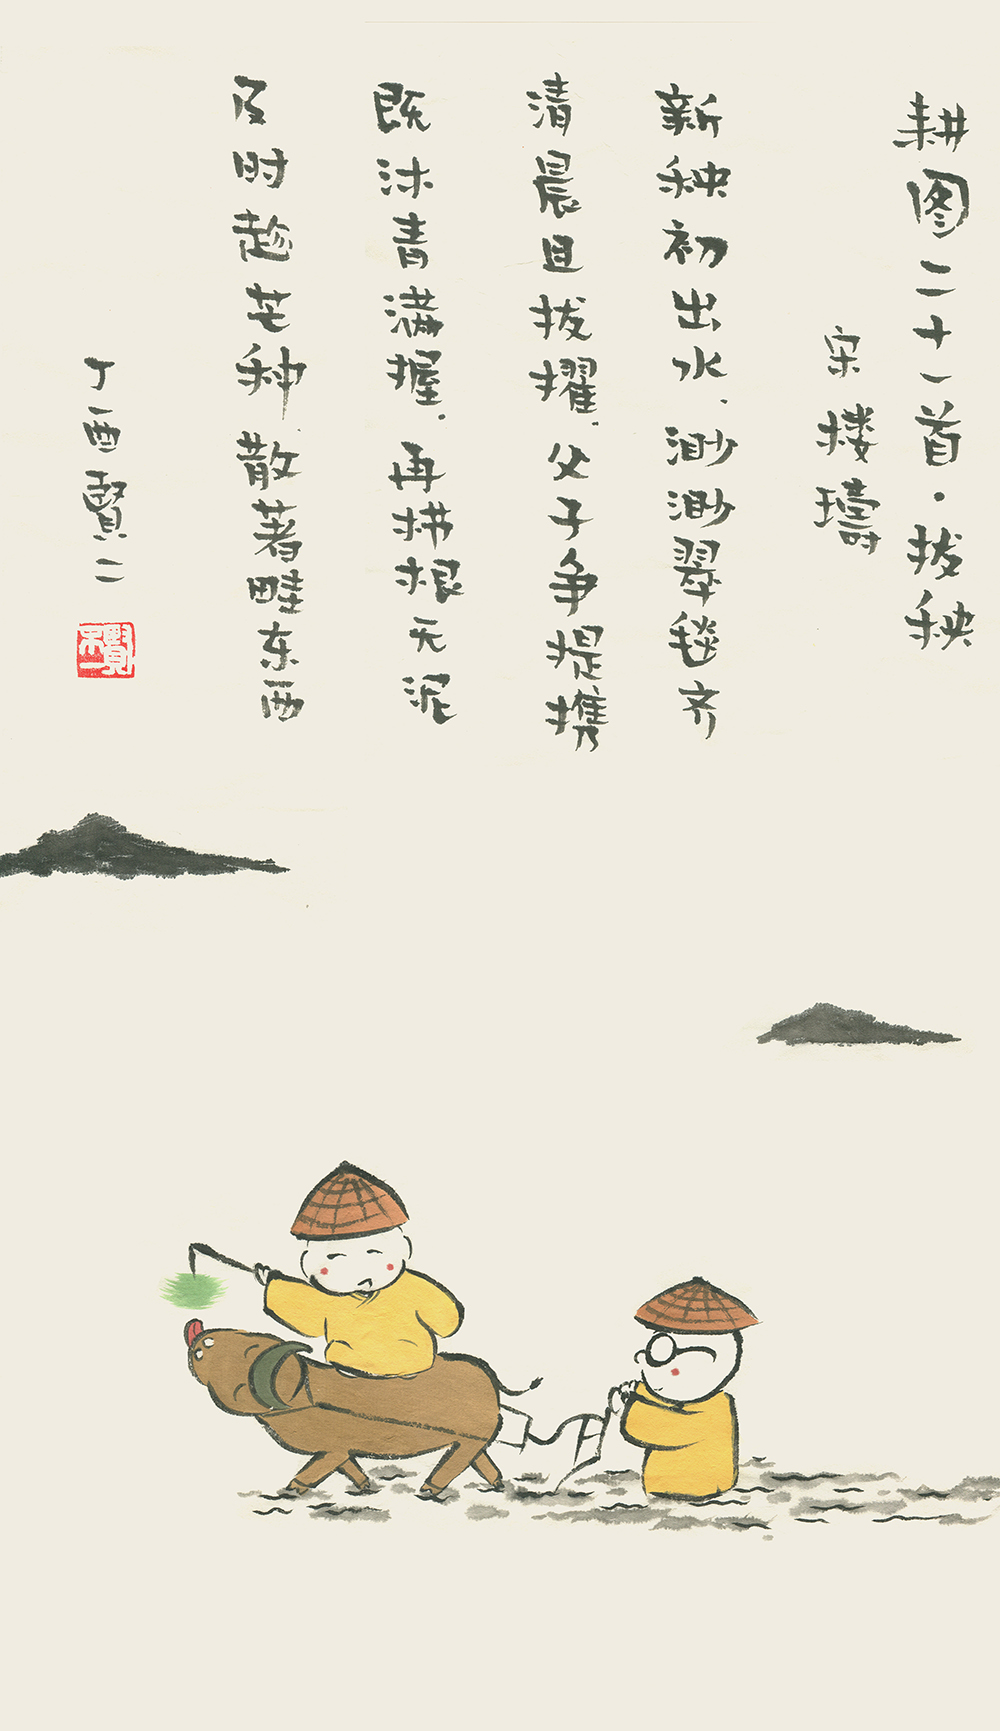 耕图二十一首·拔秧
宋 楼璹
新秧初出水、渺渺翠毯齐
清晨且拔擢、父子争提携
既沐青满握、再拂根无泥
及时趁芒种、散著畦东西
丁酉賢二